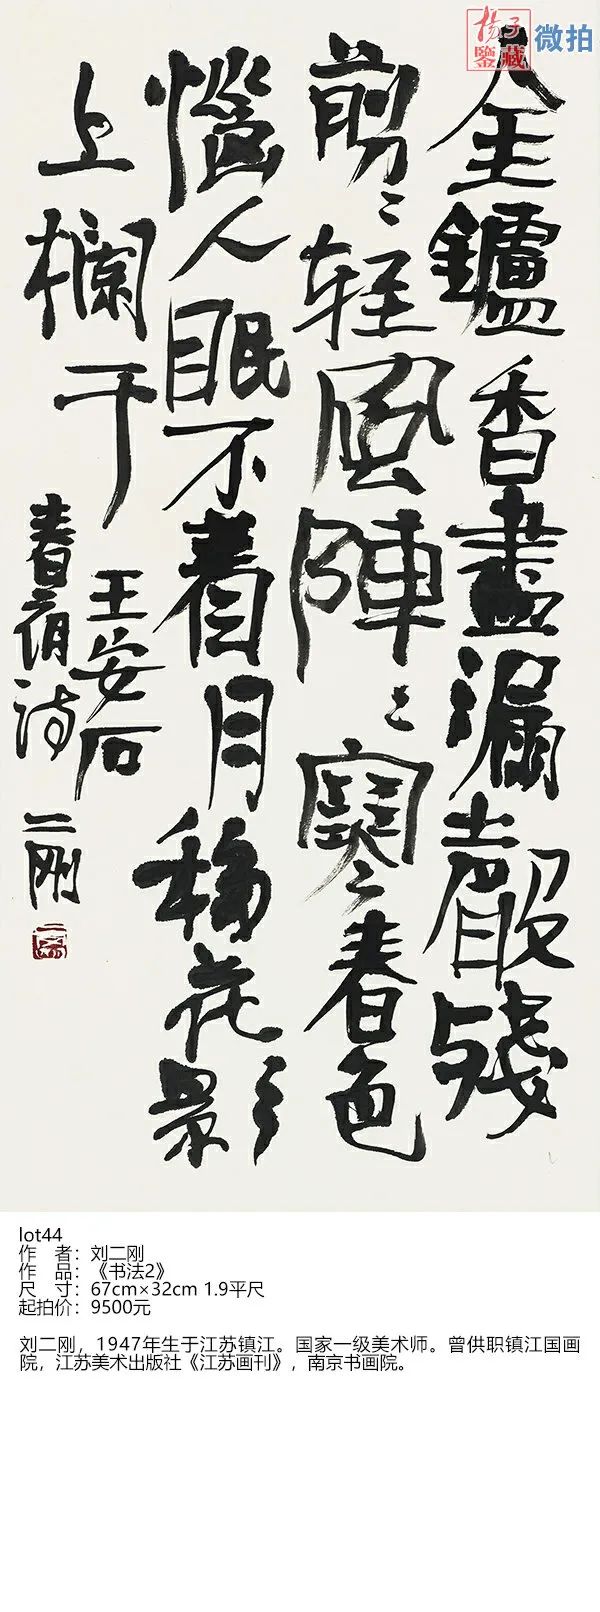 揚子
鑒藏
微拍
金鑪香盡漏聲殘
剪〻轻風陣〻寒春色
惱人眠不着月移花影
上欄干
王安石
春宵诗 二刚
lot44
作 者：刘二刚
作 品：《书法2》
尺 寸：67cm×32cm 1.9平尺
起拍价：9500元
刘二刚，1947年生于江苏镇江。国家一级美术师。曾供职镇江国画
院，江苏美术出版社《江苏画刊》，南京书画院。